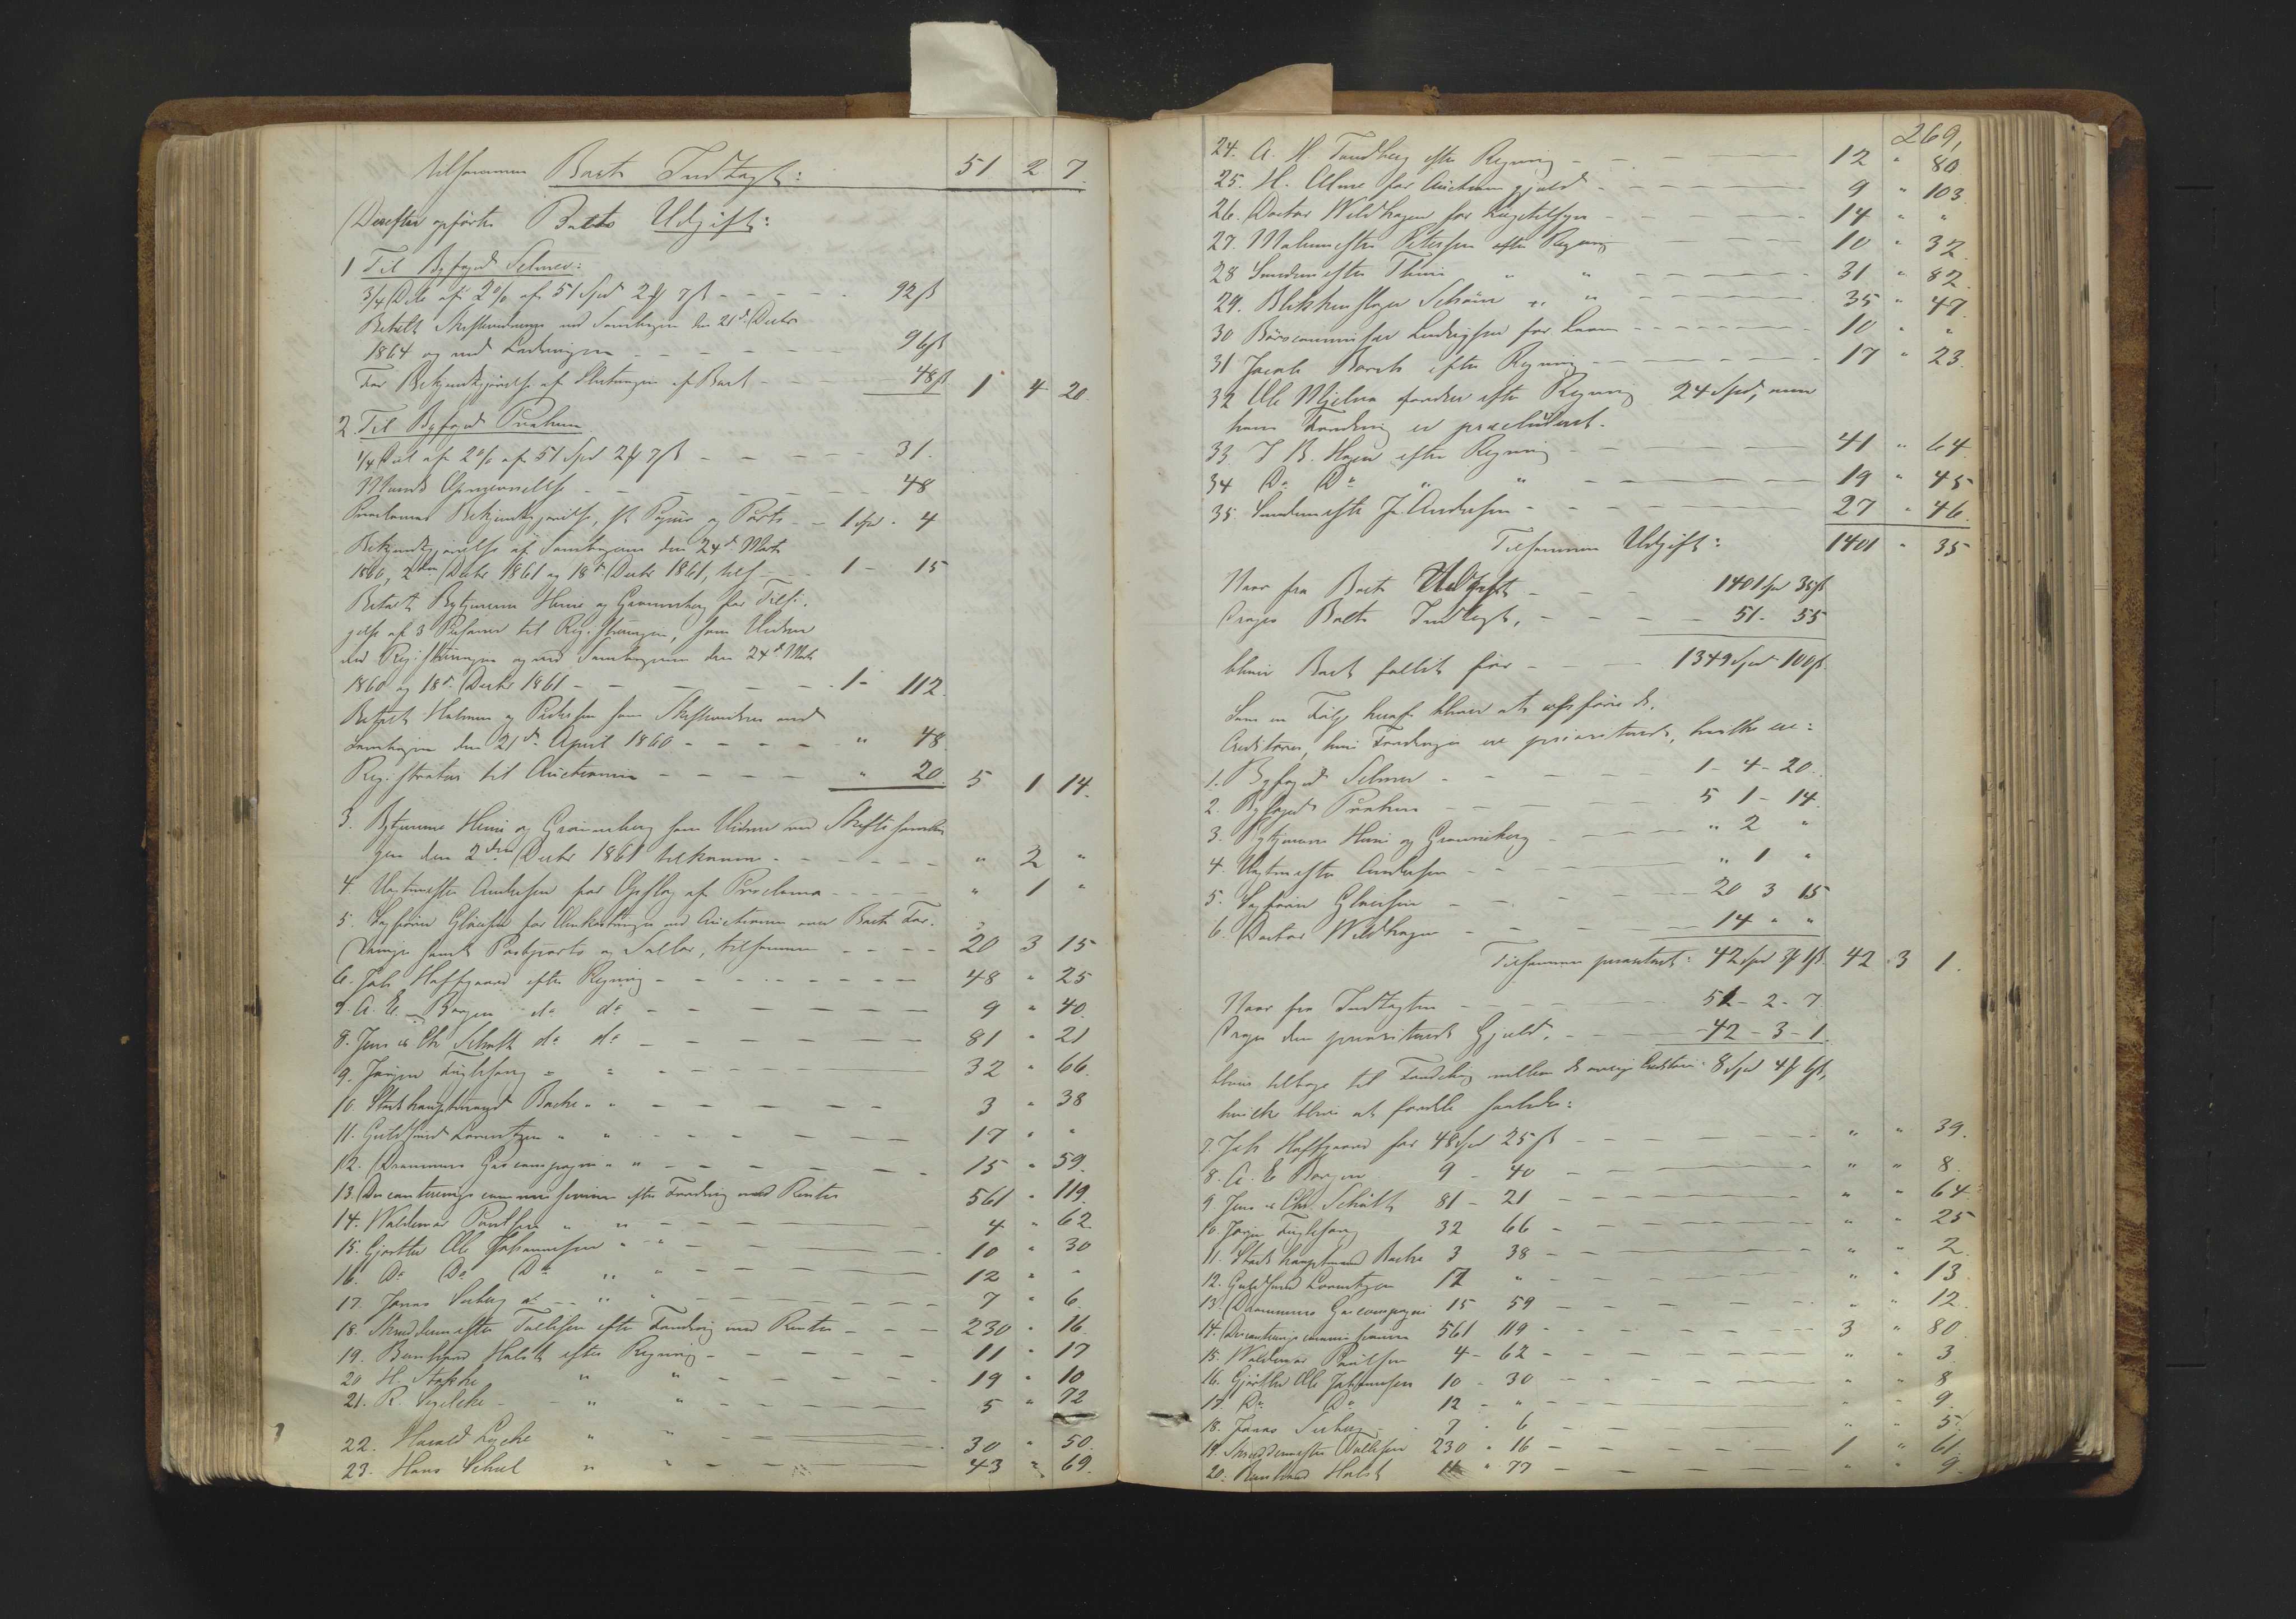 tilsammen Boets Indtægt: 51 2 7.
Derefter opførtes Boets Udgift:
1 Til Byfoged Selmer:
3/4 Dele af 2% af 51 Spd 2 # 7 ß - - - - 92 ß
Betalt Skiftevidnerne ved Samlingen den 21de Decbr
1864 og ved Ladningen - - - - - 96 ß
For Bekjendtgjørelse af Slutningen af Boet - - - 48 ß 1 4 20
2. Til Byfoged
1/4 Deel af 2% af 51 Spd 2 # 7 ß - - - - 31.
- - - - - 48
Proclamas Bekjendtgjørelse, st. Papir og Porto - - 1 Spd - 4
Bekjendtgjørelse af Samlingerne den 24de Marts
1860, 2den Decbr 1861 og 18de Decbr 1861, tils - - 1 - 15
Betalt Bytjenerne og Grønneberg for Tilsi-
gelse af 3 Personer til Registreringen, som Vidner
ved Registreringen og ved Samlingerne den 24de Marts
1860 og 18de Decbr 1861 - - - - - 1 - 112.
Betalt Halmen og Pedersen som Skiftevidner ved
Samlingen den 21de April 1860 - - - - " 48
Registratur til Auctionen - - - - " 20 5 1 14.
3. Bytjenerne og Grønneberg som Vidner ved Skiftesamlin
gen den 2den Decbr 1861 tilkommer - - - - - " 2 "
4. Vagtmester Andersen for Opslag af Proclama - - - " 1 "
5. Sagfører for Omkostninger ved Auctionen over Boets For-
dringer samt Postporto og Sallar, tilsammen - - - - 20 3 15
6. Joh Hoffgaard efter Regning - - - - - 48 " 25
7. A. E. Borgen do do - - - - - 9 " 40.
8. Jens & Chr Schult do do - - - - - 81 " 21
9. Jørgen Fuglesang " " - - - - - 32 " 66
10. Stadshauptmand Bache " " - - - - - 3 " 38
11. Guldsmed Lorentzen " " - - - - - 17 " "
12. Drammens Gascompagni " " - - - - - 15 " 59.
13. Disconteringscommissionen efter Fordring med Renter 561 " 119.
14. Waldemar Poulsen " " - - - - - 4 " 62.
15. Gjørtler Ole Johannesen " " - - - - - 10 " 30
16. Do Do Do " " - - - - - 12 " "
17. Jonas " " - - - - - 7 " 6.
18. Skreddermester Tollefsen efter Fordring med Renter - - - 230 " 16
19. Bernhard Holst efter Regning - - - - - 11 " 17
20 H. " " - - - - - 19 " 10
21. R. " " - - - - - 5 " 72
22. Harald Lyche " " - - - - - 30 " 50.
23. Hans " " - - - - - 43 " 69.
269,
24. A. H. Tandberg efter Regning - - - - 12 " 80
25. H. for Auctionsgjæld - - - - - 9 " 103
26. Doctor Wildhagen for Lægetilsyn - - - - - 14 " "
27. Malermester Petersen efter Regning - - - 10 " 32
28 Smedemester " " - - - - - 31 " 82.
29. Blikkenslager " " - - - - - 35 " 47.
30 Børscommissær Ludvigsen for Laan - - - - - 10 " "
31 Jacob Borch efter Regning - - - - - 17 " 23.
32 Ole Mjelva fordrer efter Regning 24 Spd, men
hans Fordring er præcluderet.
33 J B. Hagen efter Regning - - - - 41 " 64.
34 Do Do " " - - - - - 19 " 45
35 Smedemester Jr. Andersen - - - - - 27 " 46.
Tilsammen Udgift: 1401 " 35
Naar fra Boets Udgift - - - 1401 Spd 35 ß
drages Boets Indtægt, - - - - 51 - 55
bliver Boet fallit for - - - 1349 Spd 100 ß.
Som en Følge heraf bliver at opføre de
Creditorer, hvis Fordringer ere prioriterede, hvilke ere:
1. Byfoged Selmer - - - - 1 - 4 - 20.
2. Byfoged - - - - 5 1 - 14.
3. Bytjenerne og Grønneberg - - - " 2 "
4. Vagtmester Andersen - - - " 1 "
5. Sagfører - - - - 20 3 15
6. Doctor Wildhagen - - - - 14 " "
Tilsammen prioriteret: 42 Spd 3 # 1 ß. 42 3 1.
Naar fra Indtægten - - - - 51 - 2 - 7.
drages den prioriterede Gjæld, - - - - 42 - 3 - 1.
bliver tilbage til Fordeling mellem de øvrige Creditorer 8 Spd 4 # 6 ß,
hvilke blive at fordele saaledes:
7. Joh Hoffgaard for 48 Spd 25 ß - - - - - " " 39.
8. A. E Borgen 9 - 40 - - - - - " " 8.
9 Jens & Chr. Schult 81 - 21 - - - - - " " 64.
10. Jørgen Fuglesang 32 66 - - - - - " " 25
11. Stadshauptmand Bache 3 38 - - - - - " " 2.
12. Guldsmed Lorentzen 17 " - - - - - " " 13.
13. Drammens Gascompagni 15 59 - - - - - " " 12.
14. Disconteringscommissionen 561 119 - - - - - 3 " 80
15. Waldemar Poulsen 4 - 62 - - - - - " " 3.
16. Gjørtler Ole Johannesen 10 - 30 - - - - - " " 8
17. Do Do 12 - " - - - - - " " 9.
18. Jonas 7 - 6 - - - - - " " 5.
19. Skreddermester Tollefsen 230 " 16 - - - - - 1 " 61.
20. Bernhard Holst 11 " 77 - - - - - " " 9.